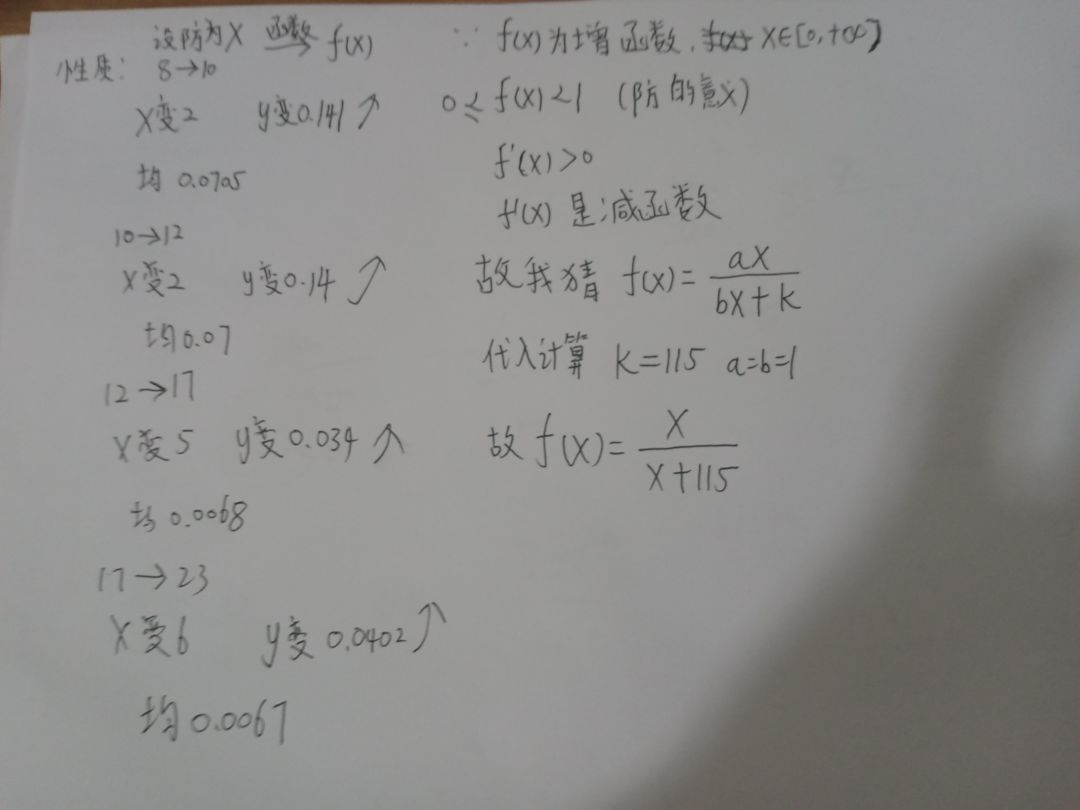 设防为X 函数→ f(x)
性质: 8→10
X变2 y变0.141↗
均 0.0705
10→12
X变2 y变0.14↗
均0.07
12→17
X变5 y变0.034↗
均 0.0068
17→23
X变6 y变0.0402↗
均0.0067
∵ f(x)为增函数, X∈[0,+∞]
0≤f(x)<1 (防的意义)
f'(x)>0
f'(x)是减函数
故我猜 f(x)=ax/(bx+k)
代入计算 K=115 a=b=1
故 f(x)=X/(X+115)